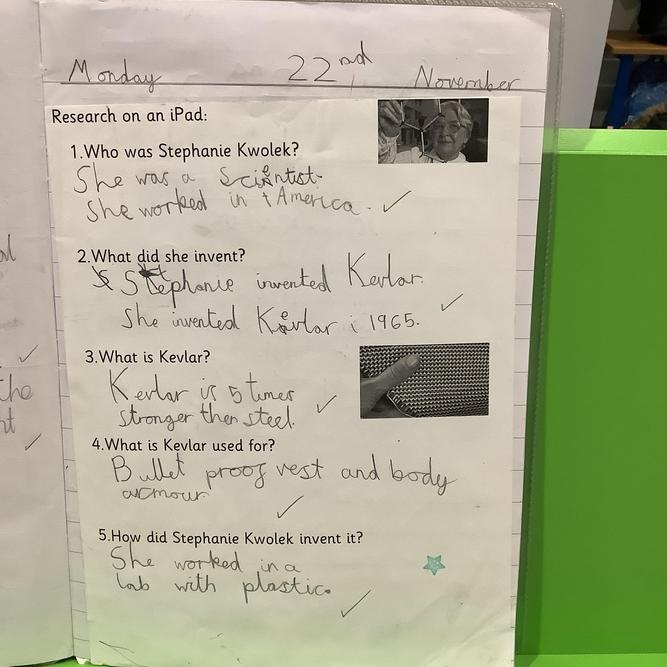 Monday 22nd November
Research on an iPad:
1.Who was Stephanie Kwolek?
She was a Scientist.
She worked in America.
2.What did she invent?
Stephanie invented Kevlar.
She invented Kevlar i 1965.
3.What is Kevlar?
Kevlar is 5 times
stronger then steel.
4.What is Kevlar used for?
Bullet proof vest and body
armour
5.How did Stephanie Kwolek invent it?
She worked in a
lab with plastic.
the